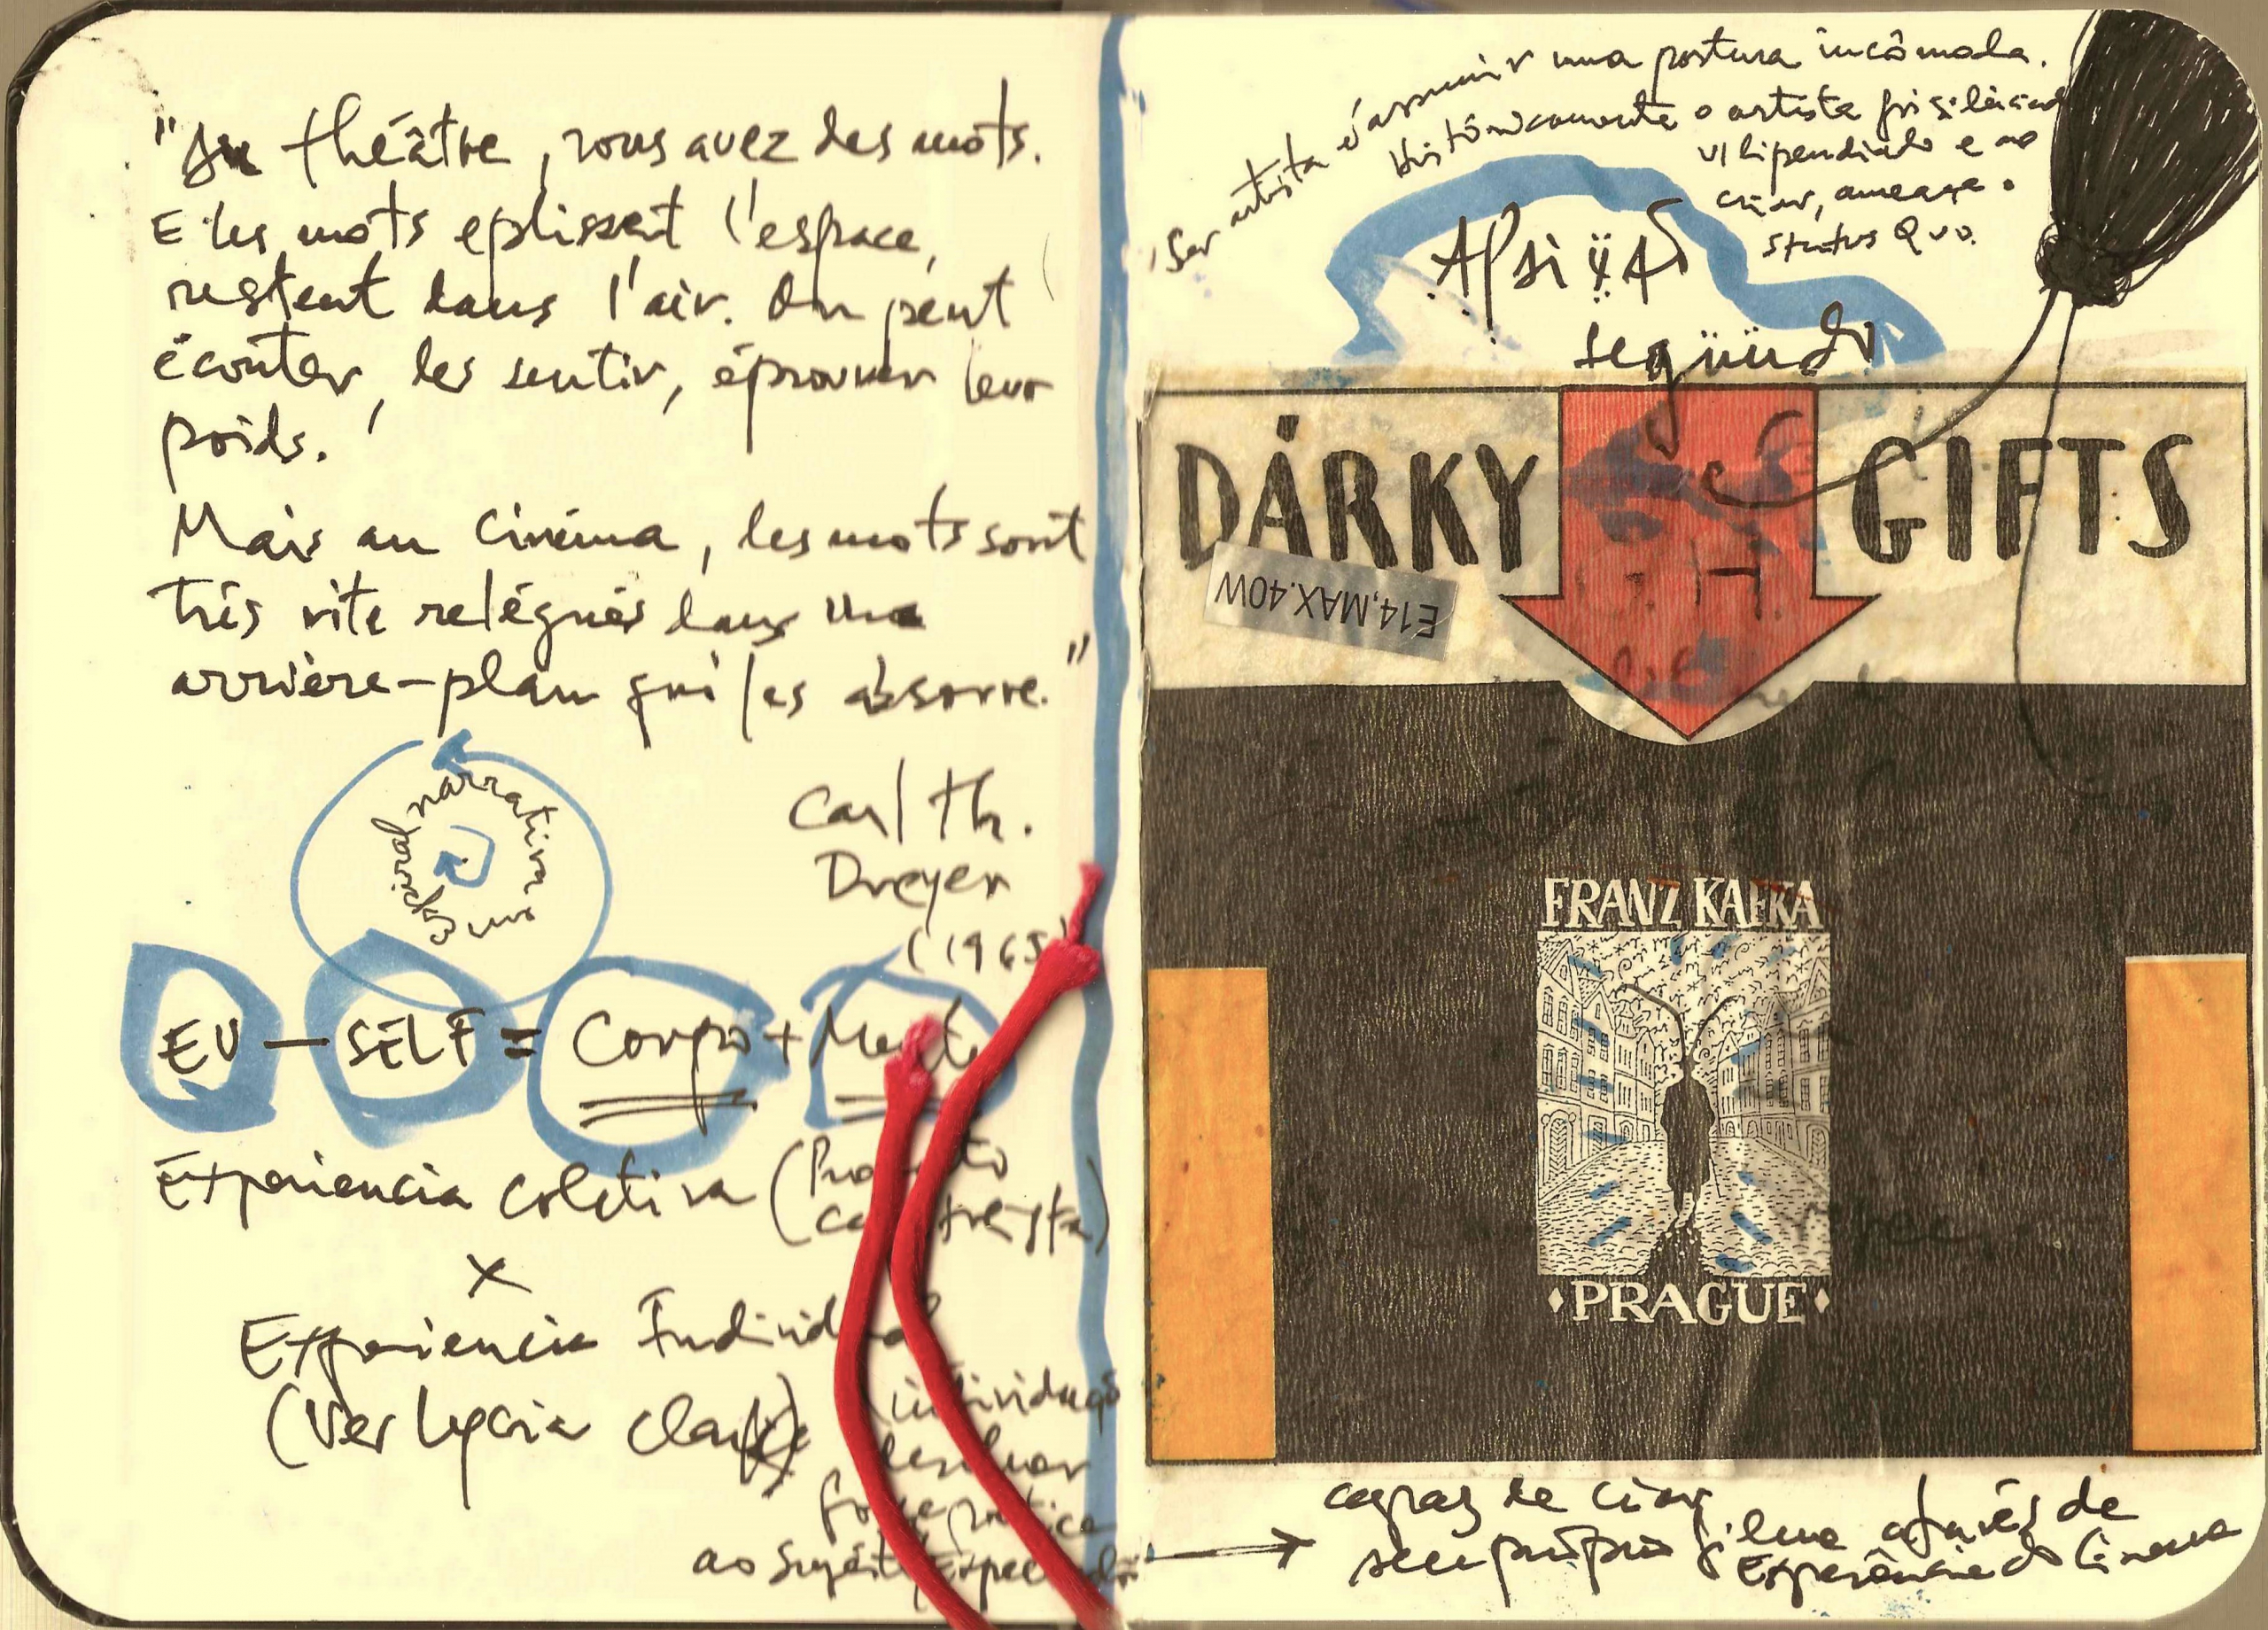 "Au théâtre, vous avez des mots.
E les mots eplissent l'espace,
restent dans l'air. On peut
écouter, les sentir, éprouver leur
poids.
Mais au cinéma, les mots sont
trés vite relégués dans une
arrière-plan qui les absorve."
Carl Th.
Dreyer
(1965)
espiral narrativa
EU — SELF = Corpo + Mente
Experiencia coletiva
X
Experiencia Individual
(Ver Lycia Clark)
ao
Ser artista é assumir uma postura incômoda.
Históricamente o artista foi
vilipendiado e ao
criar, ameaça o
status Quo.
següüdo
DÁRKY
GIFTS
E14,MAX.40W
FRANZ KAFKA
PRAGUE
de criar
seu próprio filme através de
Experiência do Cinema